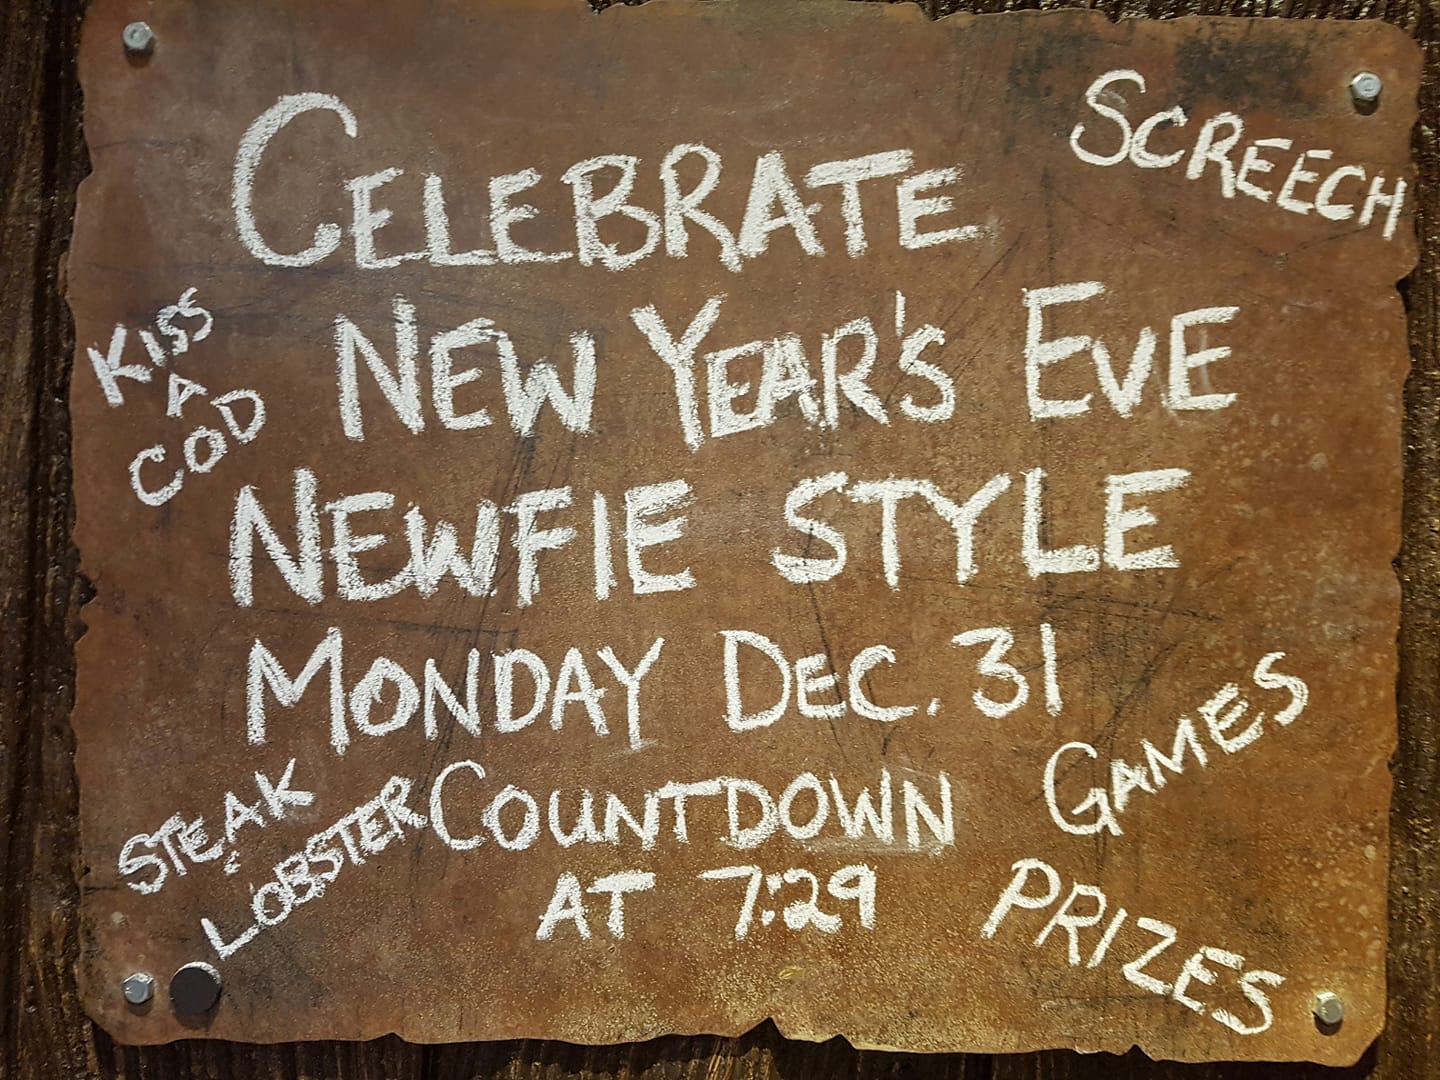 CELEBRATE
SCREECH
NEW YEAR'S EVE
KISS
A
COD
NEWFIE STYLE
MONDAY DEC. 31
STEAK
&
LOBSTER
COUNTDOWN
AT 7:29
GAMES
PRIZES